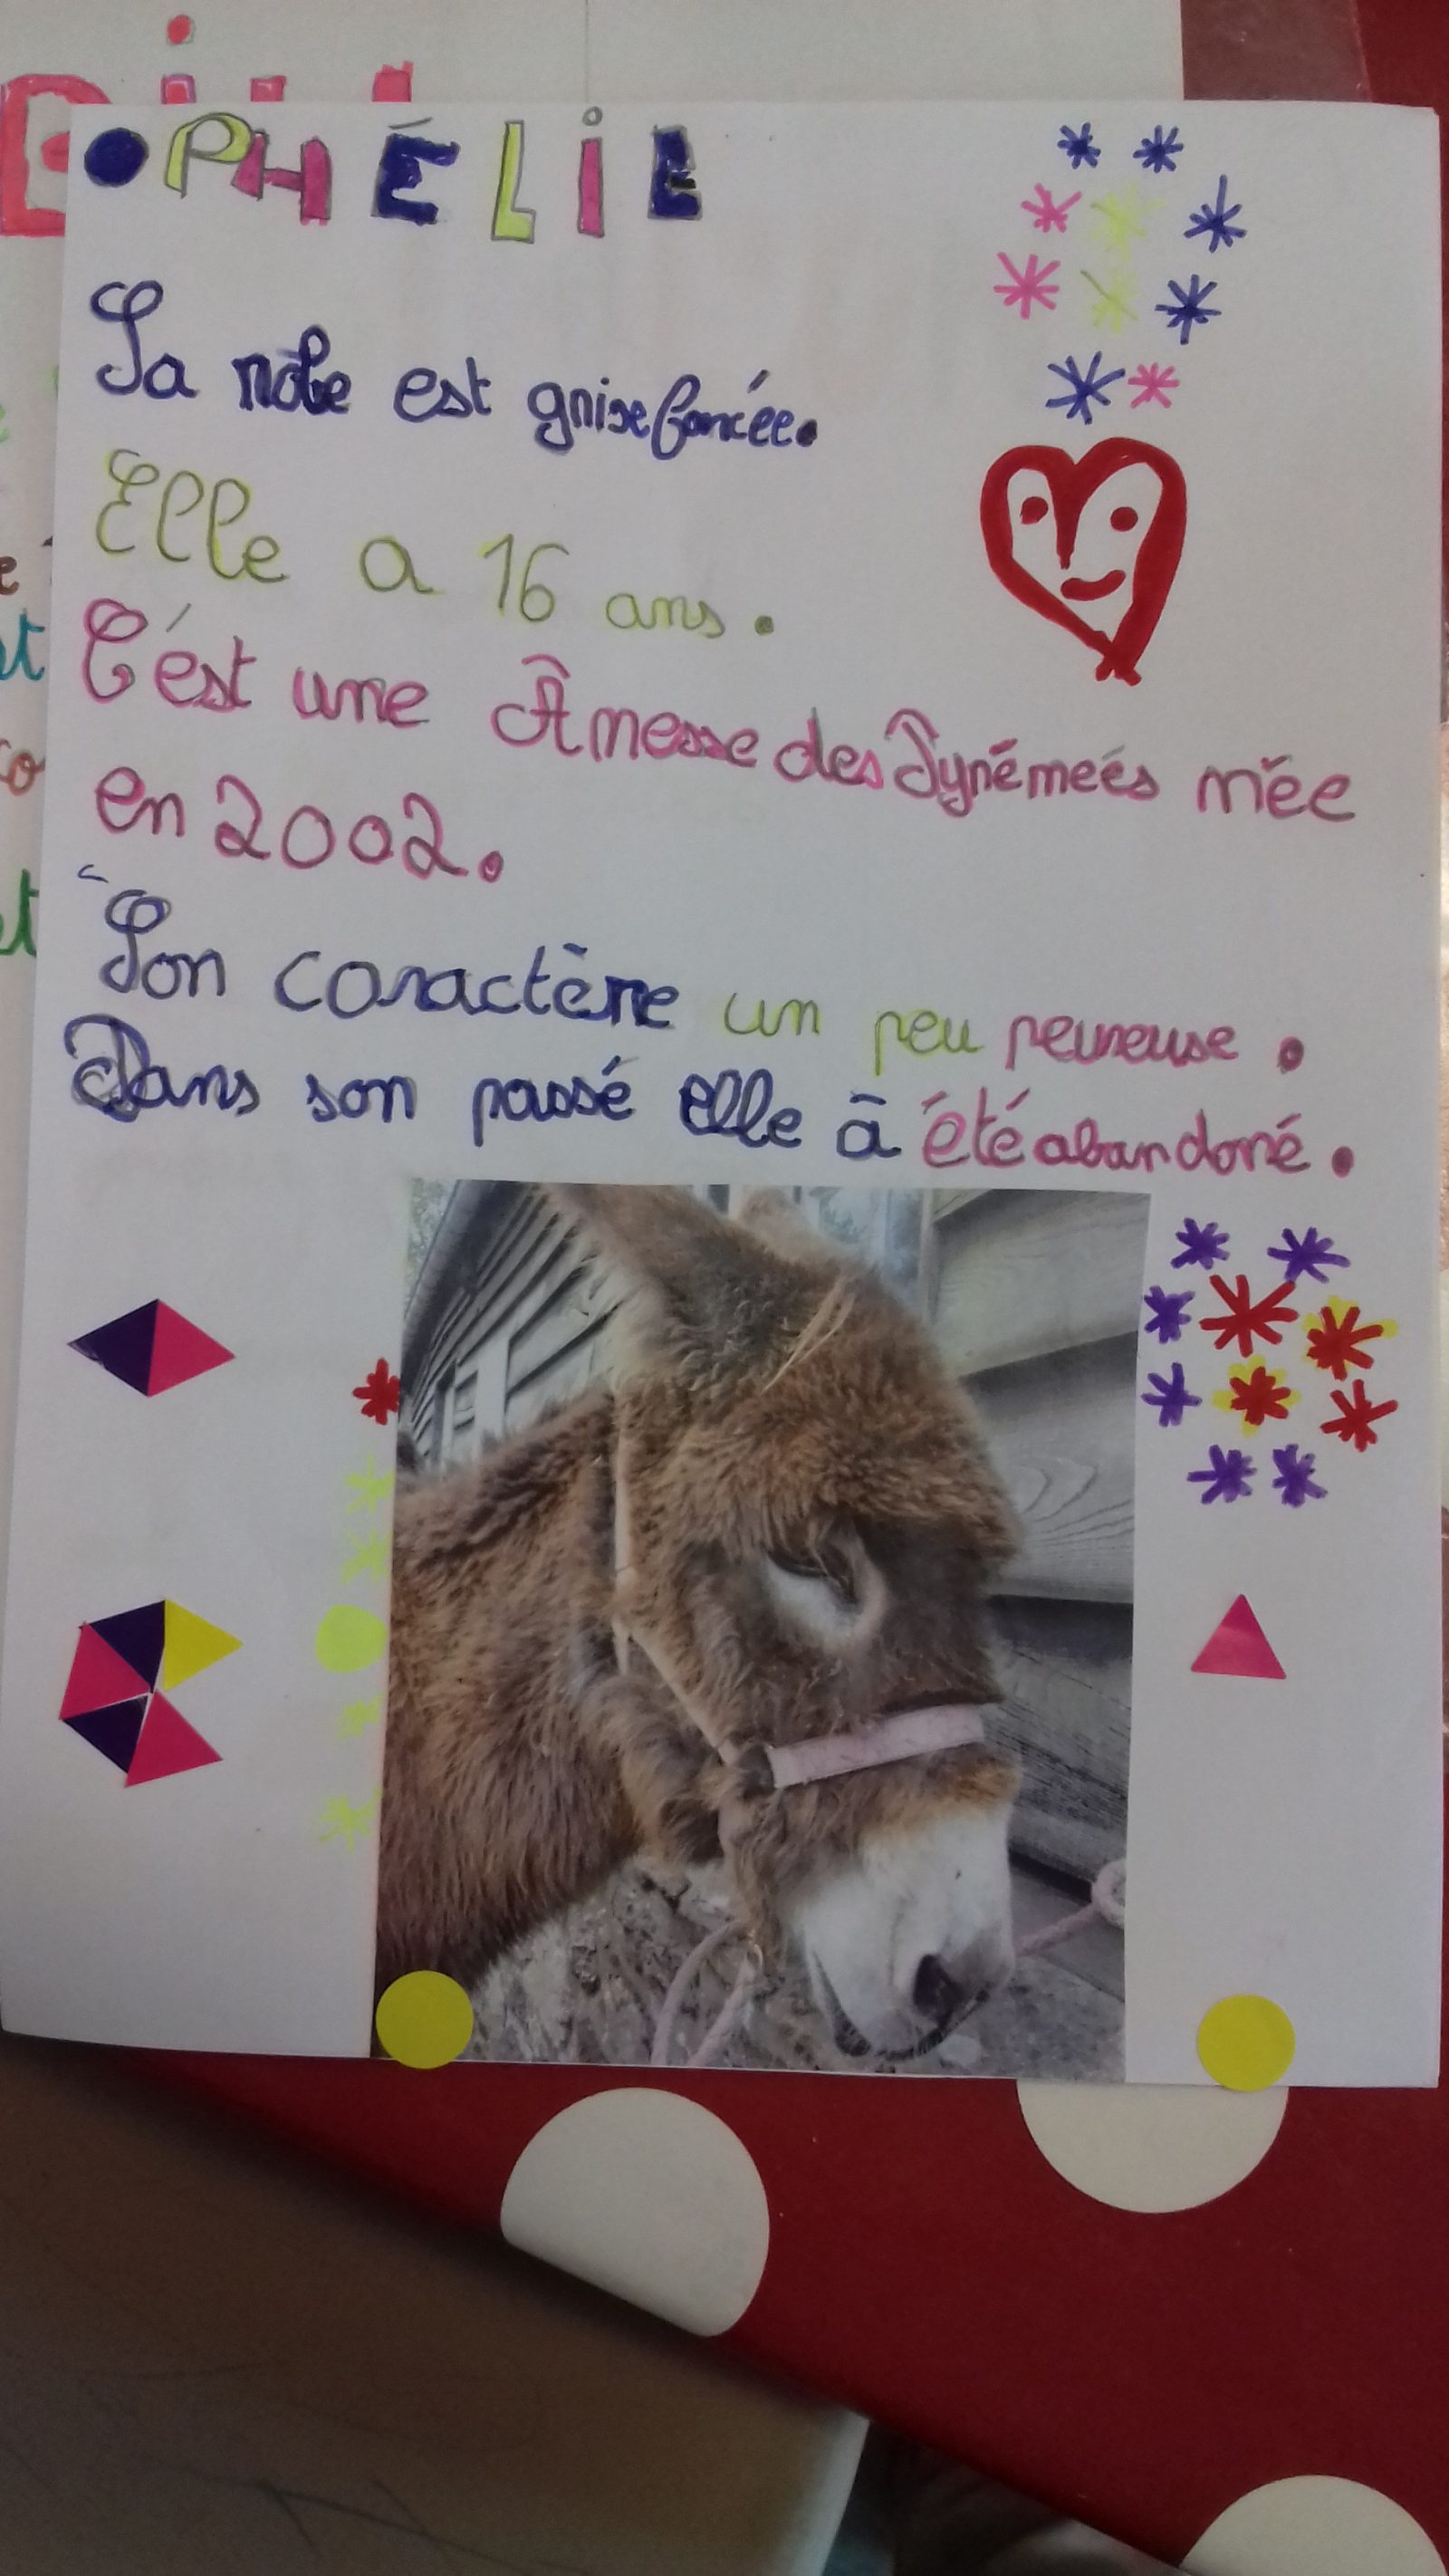 OPHÉLIE
Sa robe est grise foncée.
Elle a 16 ans.
C'est une Ânesse des Pyrénées née
en 2002.
Son caractère un peu peureuse.
Dans son passé elle à été abandoné.